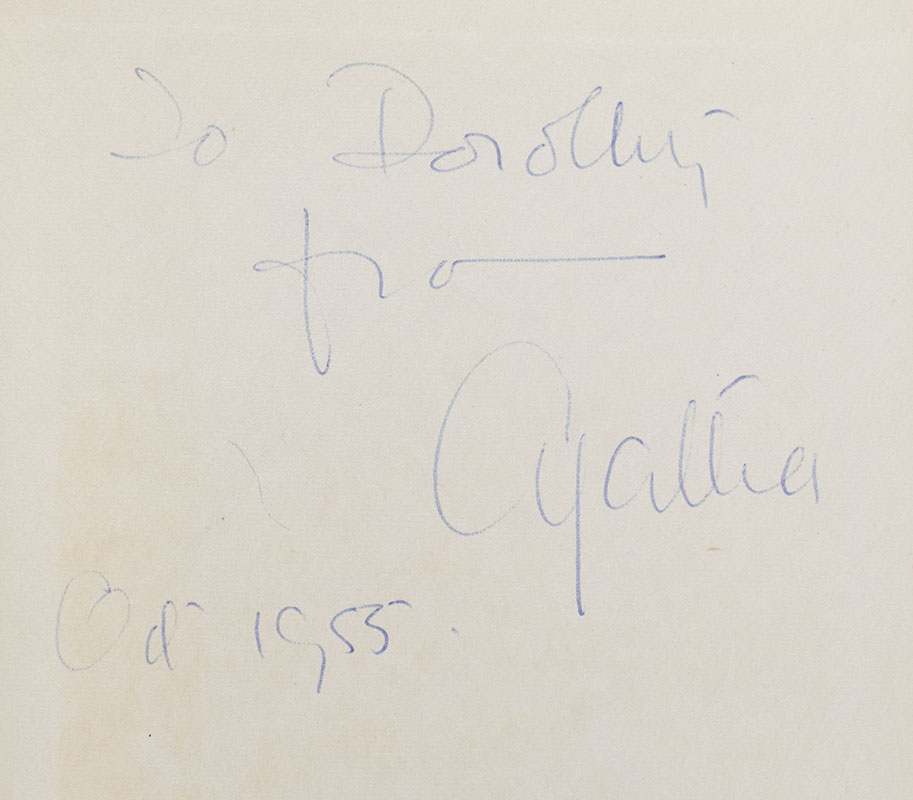 To Dorothy
from
Agatha
Oct 1955.